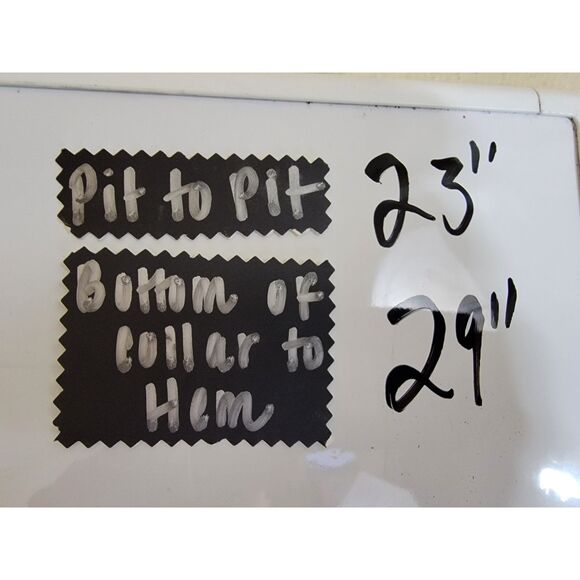 Pit to Pit 23"
Bottom of
collar to
Hem
29"